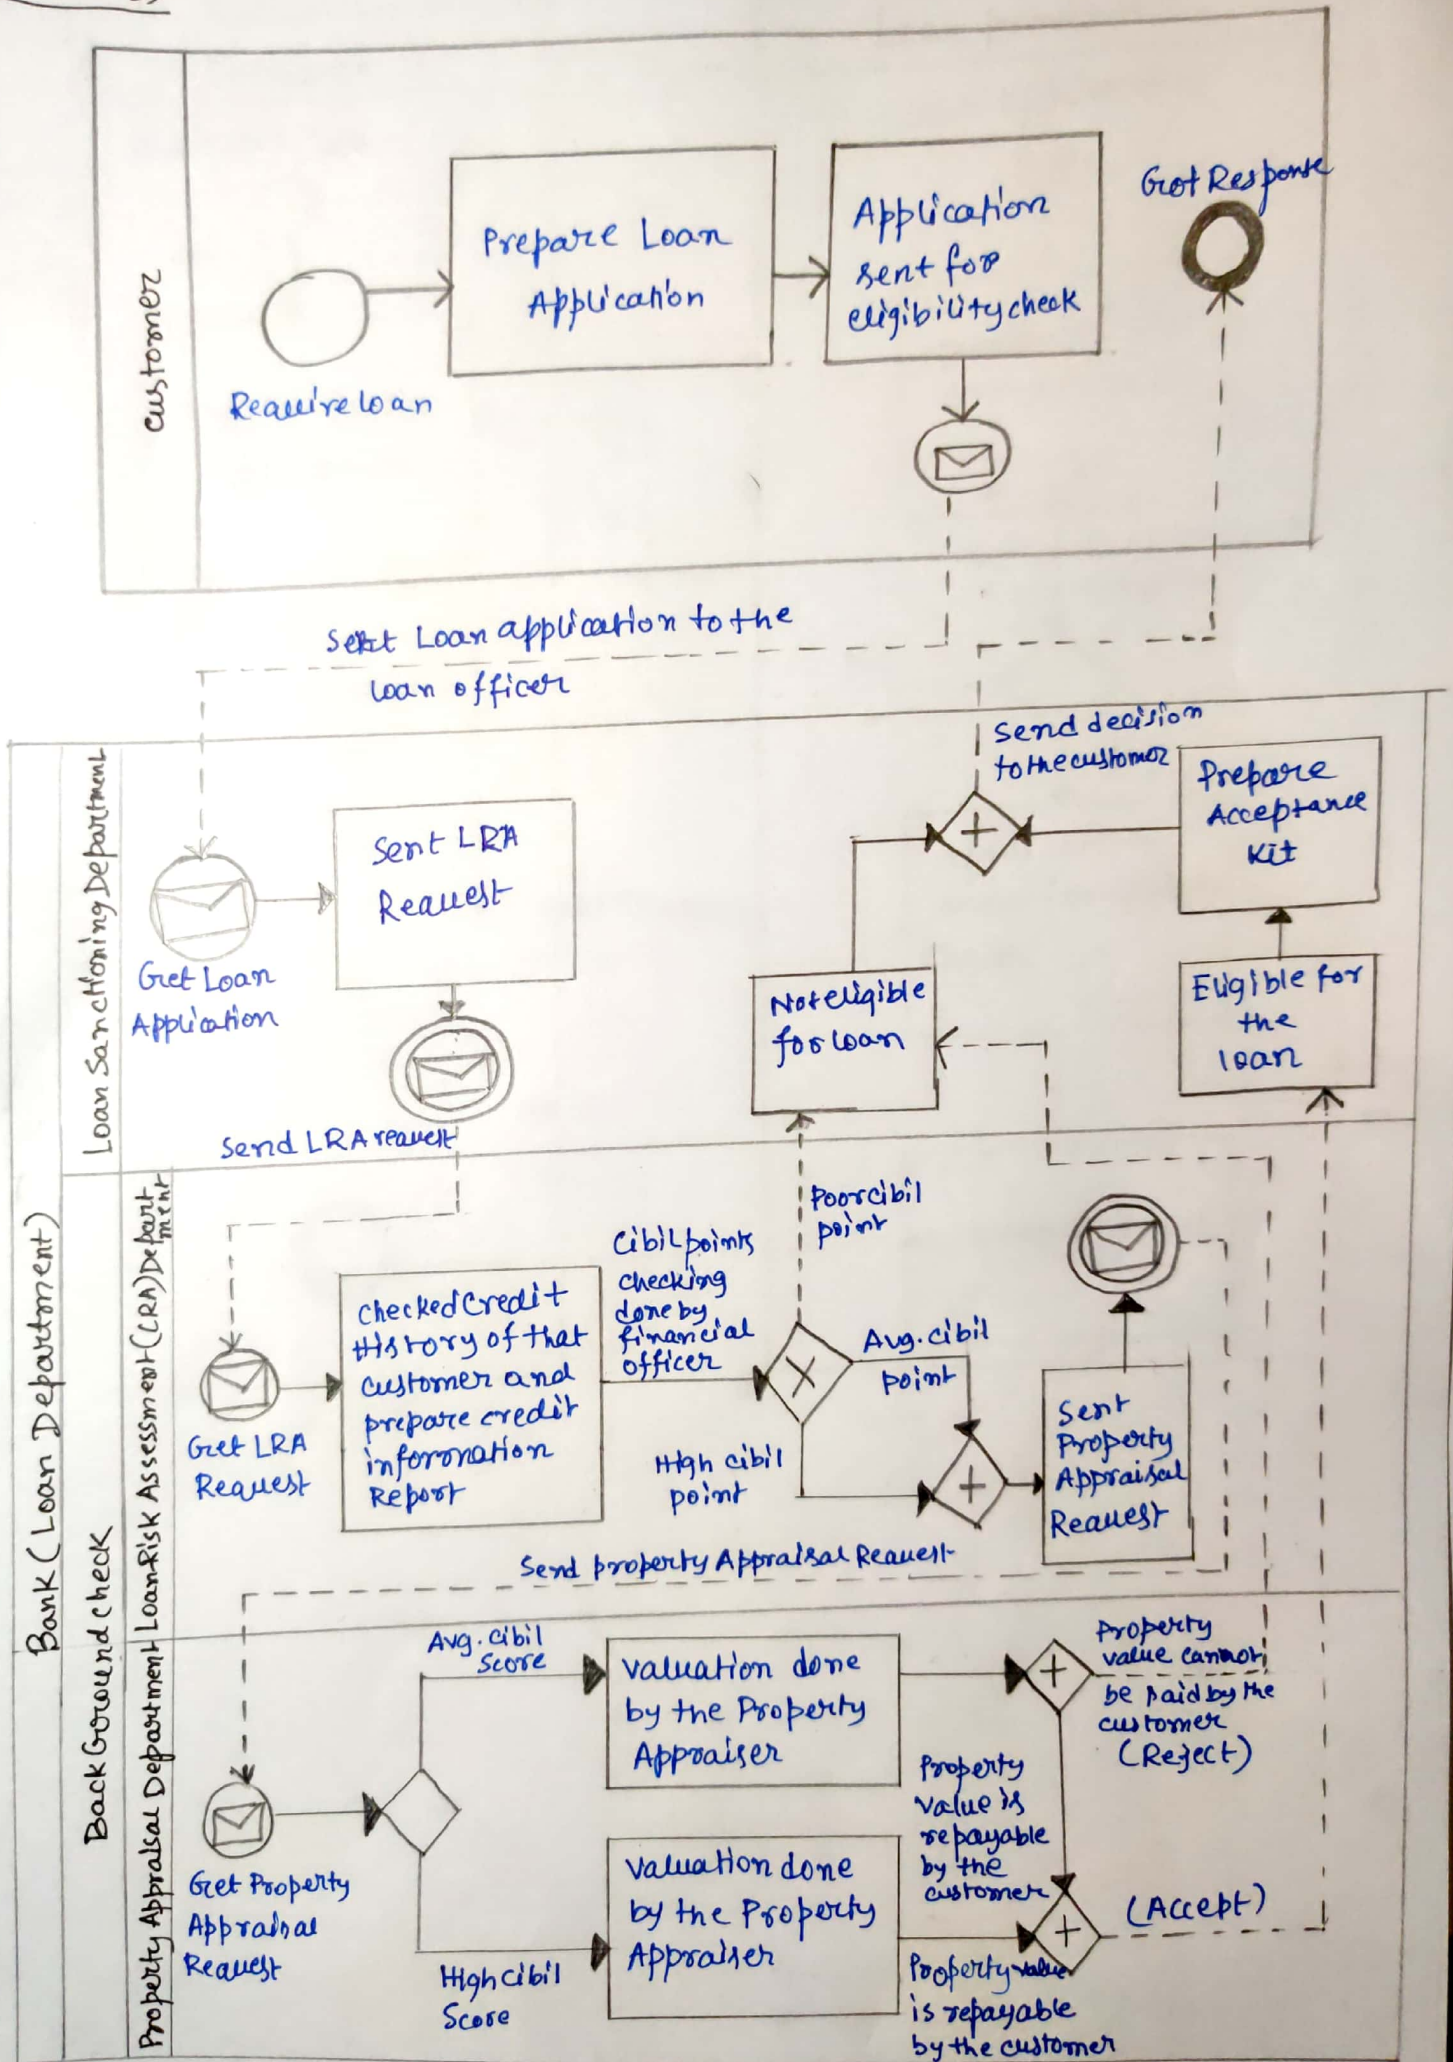 customer
Require loan
Prepare Loan
Application
Application
sent for
eligibility check
Got Response
Sent Loan application to the
loan officer
Bank (Loan Department)
Loan Sanctioning Department
Get Loan
Application
Sent LRA
Request
Send LRA request
Send decision
to the customer
Prepare
Acceptance
Kit
Not eligible
for loan
Eligible for
the
loan
BackGround check
Loan-Risk Assessment (LRA) Depart
ment
Get LRA
Request
checked Credit
History of that
customer and
prepare credit
information
Report
Cibil points
checking
done by
financial
officer
Poor cibil
point
Avg. cibil
point
High cibil
point
Sent
Property
Appraisal
Request
Send property Appraisal Request
Property Appraisal Department
Get Property
Appraisal
Request
Avg. cibil
Score
High cibil
Score
valuation done
by the Property
Appraiser
valuation done
by the Property
Appraiser
Property
value cannot
be paid by the
customer
(Reject)
Property
value is
repayable
by the
customer
(Accept)
Property value
is repayable
by the customer